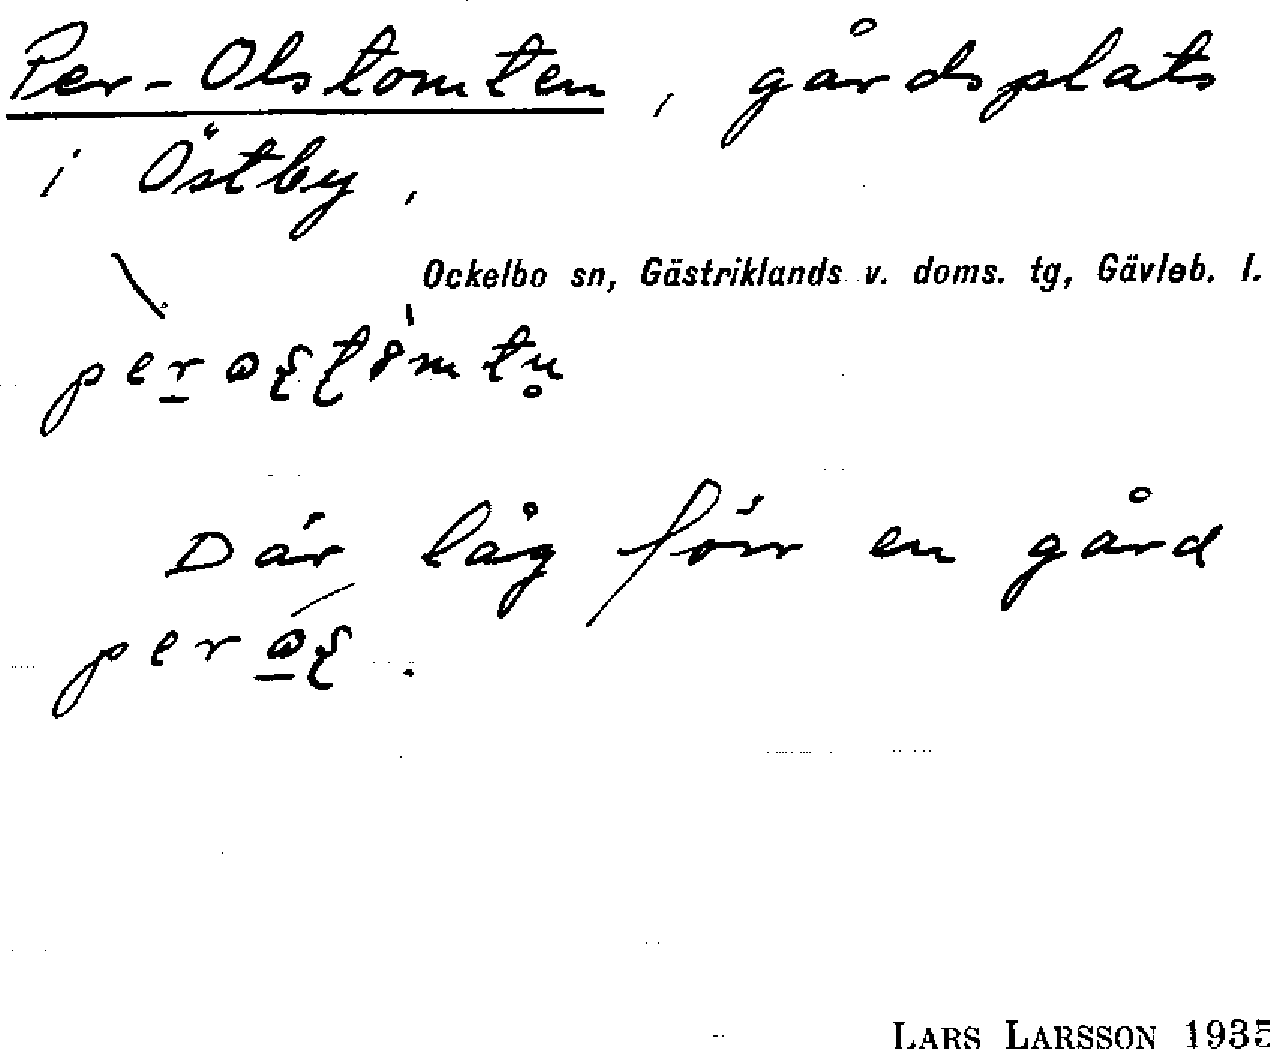 Per-Olstomten, gårdsplats
i Östby,
Ockelbo sn, Gästriklands v. doms. tg, Gävleb. l.
Där låg förr en gård
LARS LARSSON 1935